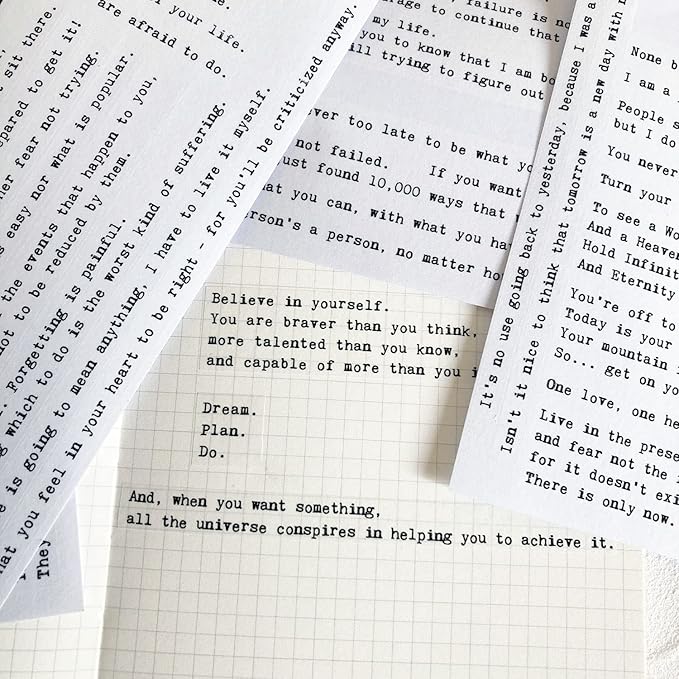 sit there.
your life.
are afraid to do.
to get it!
fear not trying.
easy nor what is popular.
the events that happen to you,
not to be reduced by them.
Forgetting is painful.
which to do is the worst kind of suffering.
is going to mean anything, I have to live it myself.
what you feel in your heart to be right - for you'll be criticized anyway.
They
failure is no
to continue that
my life.
you to know that I am
still trying to figure out
too late to be what
not failed. If you want
just found 10,000 ways that
what you can, with what you
person's a person, no matter
Believe in yourself.
You are braver than you think,
more talented than you know,
and capable of more than you
Dream.
Plan.
Do.
And, when you want something,
all the universe conspires in helping you to achieve it.
It's no use going back to yesterday, because I was a
Isn't it nice to think that tomorrow is a new day with
None
I am a
People
but I do
You never
Turn your
To see a
And a
Hold
And Eternity
You're off to
Today is your
Your mountain
So... get on
One love, one
Live in the
and fear not the
for it doesn't
There is only now.